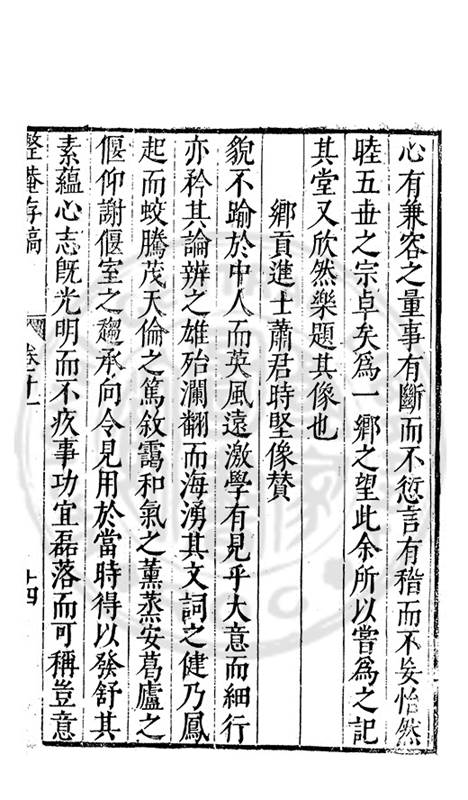 心有兼容之量事有斷而不愆言有稽而不妄怡然
睦五世之宗卓矣爲一鄉之望此余所以嘗爲之記
其堂又欣然樂題其像也
鄉貢進士蕭君時堅像贊
貌不踰於中人而英風遠激學有見乎大意而細行
亦矜其論辨之雄殆瀾翻而海湧其文詞之健乃鳳
起而蛟騰茂天倫之篤敘靄和氣之薰蒸安葛廬之
偃仰謝偃室之趨承向令見用於當時得以發舒其
素蘊心志旣光明而不疚事功宜磊落而可稱豈意
整菴存稿 卷十一 十四